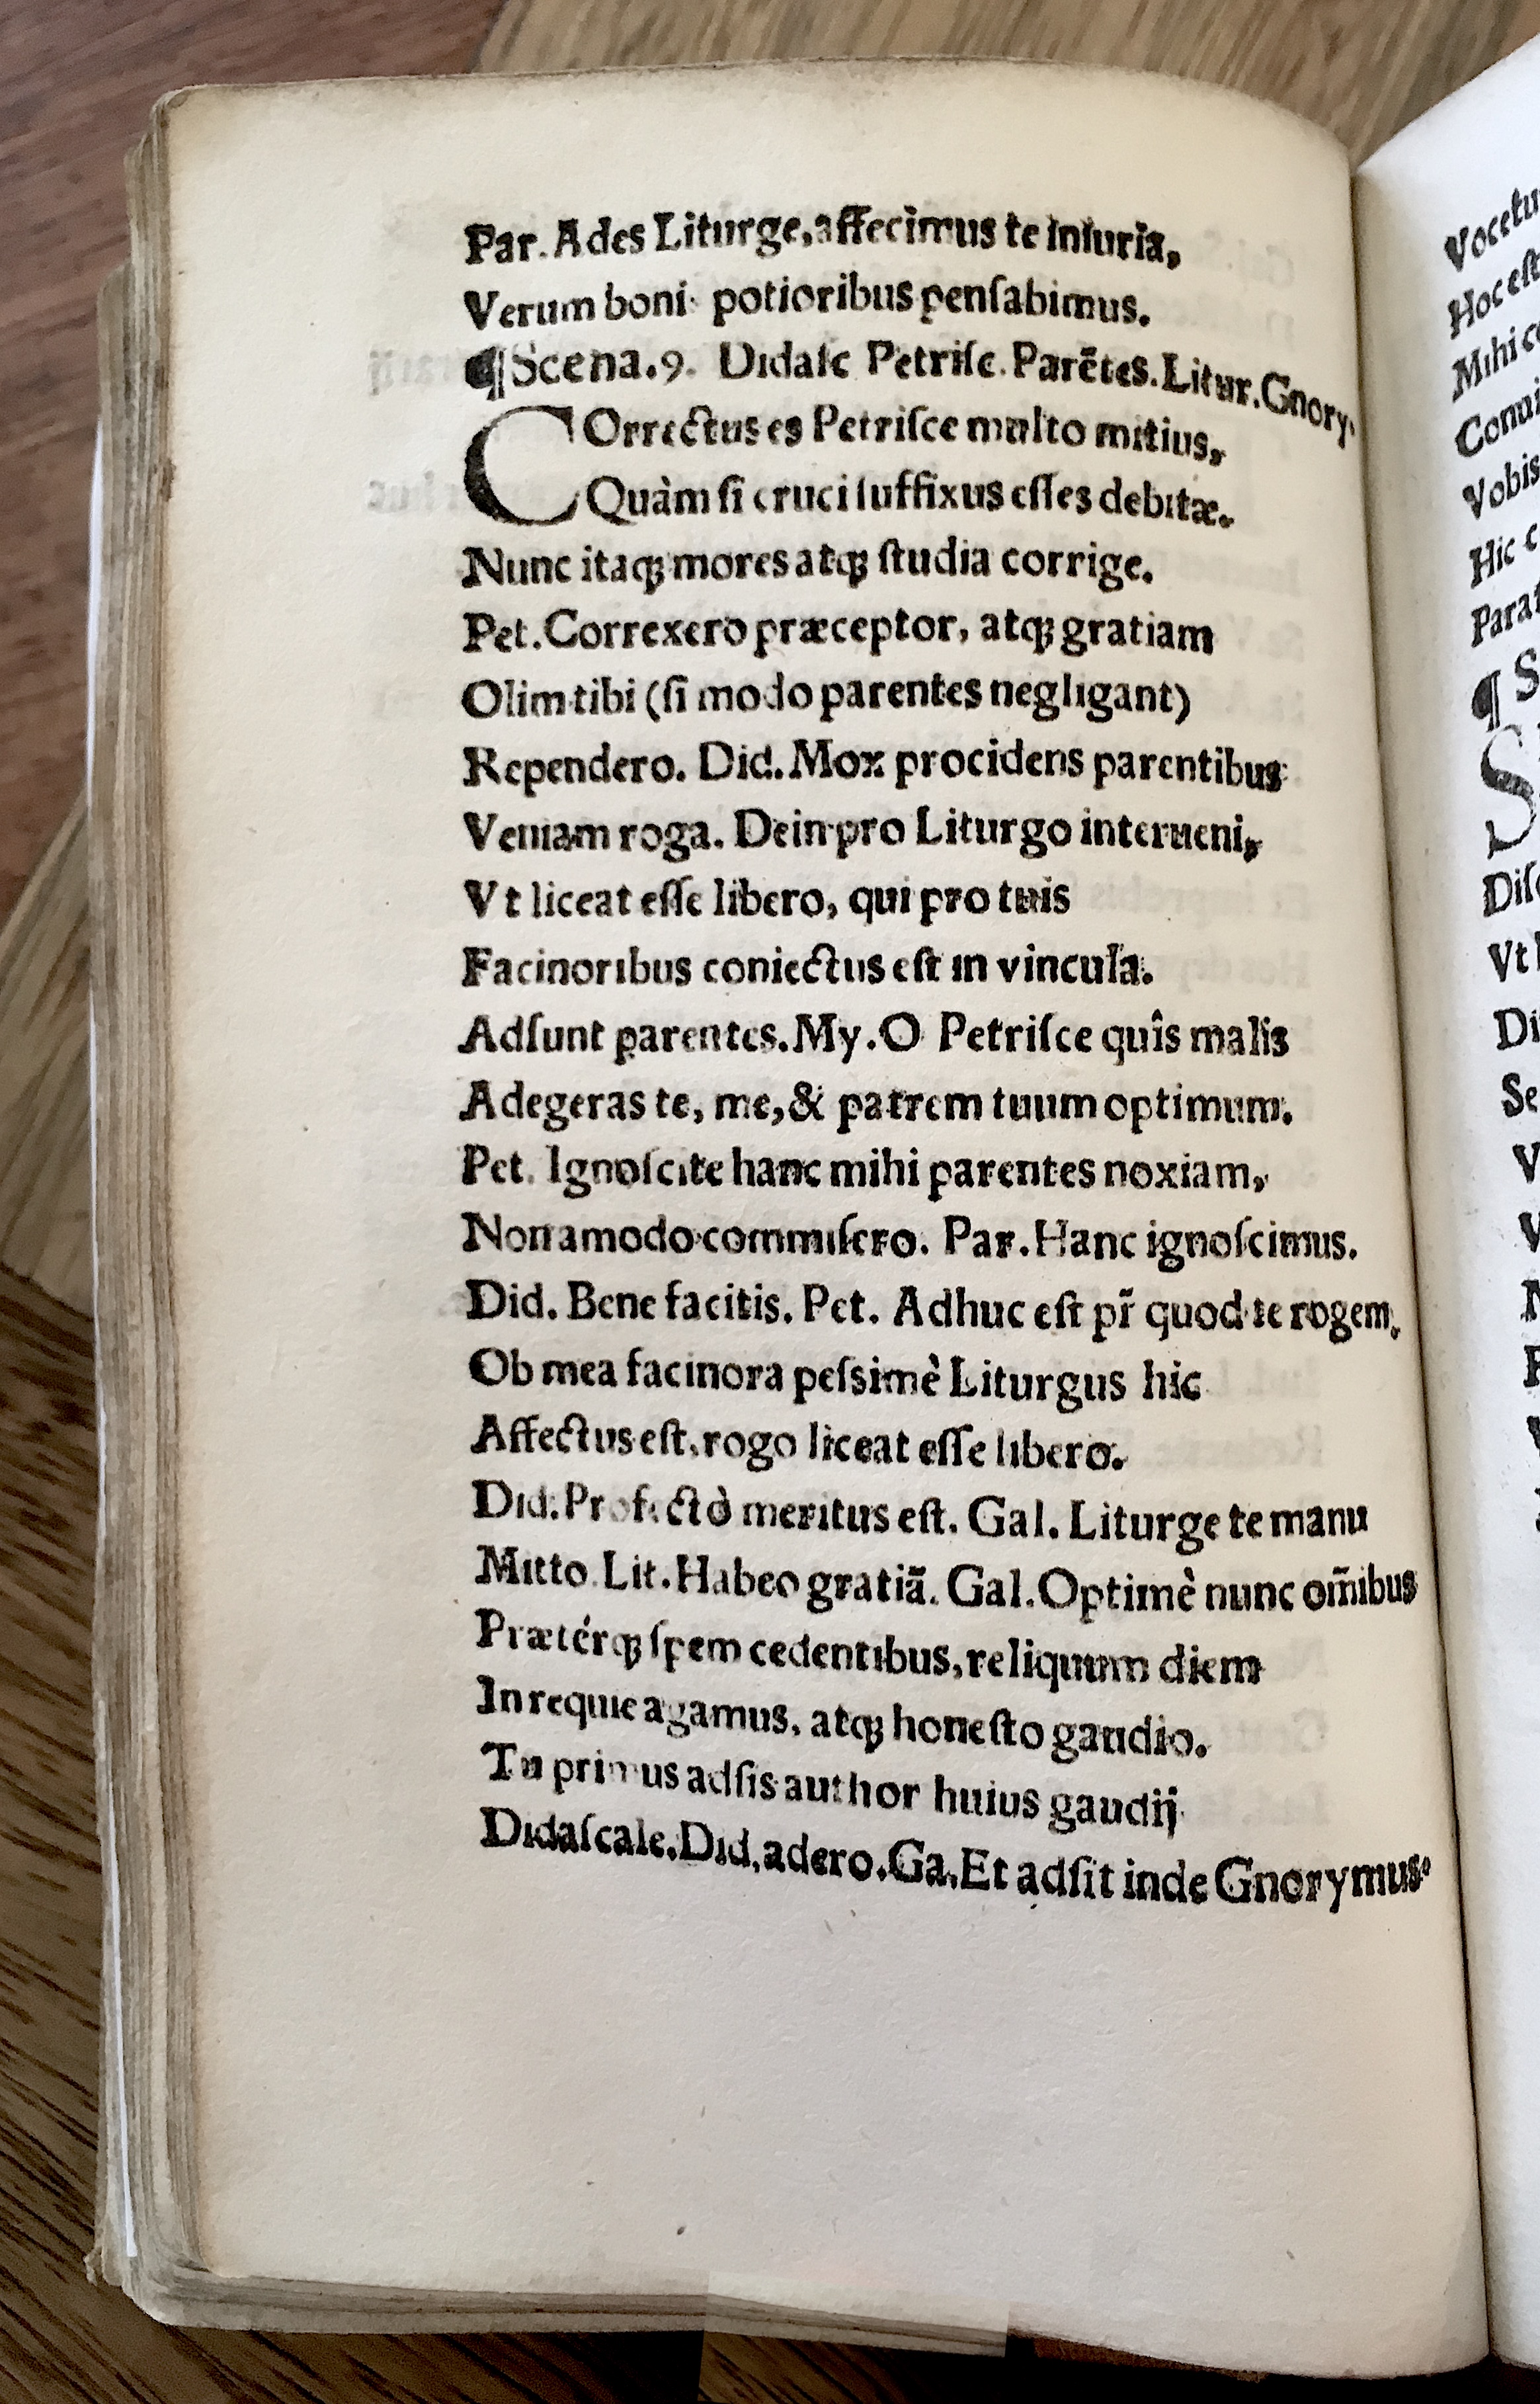 Par. Ades Liturge, affecimus te iniuria,
Verum boni potioribus penſabimus.
¶Scena.9. Didaſc Petriſc. Parētes. Litur. Gnory.
COrrectus es Petriſce multo mitius,
Quàm ſi cruci ſuffixus eſſes debitæ.
Nunc itaqꝫ mores atqꝫ ſtudia corrige.
Pet. Correxero præceptor, atqꝫ gratiam
Olim tibi (ſi modo parentes negligant)
Rependero. Did. Mox procidens parentibus
Veniam roga. Dein pro Liturgo interueni,
Vt liceat eſſe libero, qui pro tuis
Facinoribus coniectus eſt in vincula.
Adſunt parentes. My. O Petriſce quîs malis
Adegeras te, me, & patrem tuum optimum.
Pet. Ignoſcite hanc mihi parentes noxiam,
Non amodo commiſero. Par. Hanc ignoſcimus.
Did. Bene facitis. Pet. Adhuc eſt pr̃ quod te rogem,
Ob mea facinora peſsimè Liturgus hic
Affectus eſt, rogo liceat eſſe libero.
Did. Profectò meritus eſt. Gal. Liturge te manu
Mitto. Lit. Habeo gratiã. Gal. Optimè nunc om̃ibus
Prætérqꝫ ſpem cedentibus, reliquum diem
In requie agamus, atqꝫ honeſto gaudio.
Tu primus adſis author huius gaudij
Didaſcale. Did. adero. Ga. Et adſit inde Gnorymus.
Vocetu
Hoc eſt
Mihi c
Conui
Vobis
Hic c
Parat
¶ S
S
Diſc
Vt l
Di
Se
V